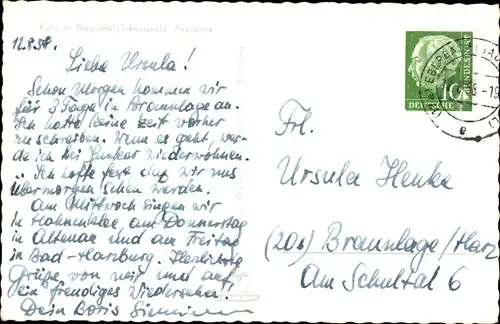 Calw im Nagoldtal, Schwarzwald Akademie
12.8.58.
Liebe Ursula!
Schon morgen kommen wir
für 3 Tage in Braunlage an.
Ich hatte keine Zeit vorher
zu schreiben. Wenn es geht, wer-
de ich bei Junker wieder wohnen.
Ich hoffe, daß wir uns
übermorgen sehen werden.
Am Mittwoch singen wir
in Hahnenklee, am Donnerstag
in Altenau und am Freitag
in Bad-Harzburg. Herzliche
Grüße von mir und auf
ein freudiges Wiedersehen!
Dein Boris
DEUTSCHE BUNDESPOST
10
Frl.
Ursula Henke
(20b) Braunlage/Harz
Am Schultal 6